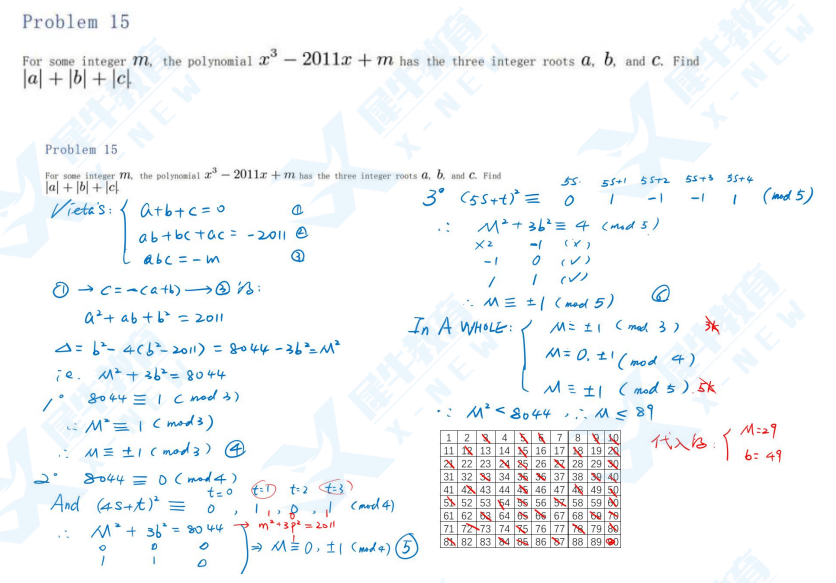 Problem 15
For some integer m, the polynomial x³ − 2011x + m has the three integer roots a, b, and c. Find
|a| + |b| + |c|.
Problem 15
For some integer m, the polynomial x³ − 2011x + m has the three integer roots a, b, and c. Find
|a| + |b| + |c|.
Vieta's: { a+b+c=0 ①
ab+bc+ac = -2011 ②
abc = -m ③
① → c=-(a+b) → ② 得:
a²+ab+b² = 2011
Δ= b²-4(b²-2011) = 8044-3b²=M²
i.e. M²+3b²=8044
1° 8044 ≡ 1 (mod 3)
∴ M²≡ 1 (mod 3)
∴ M ≡ ±1 (mod 3) ④
2° 8044 ≡ 0 (mod 4)
t=0 t=1 t=2 t=3
And (4s+t)² ≡ 0, 1, 0, 1 (mod 4)
∴ M² + 3b² = 8044 → m²+3p²=2011
0 0 0
1 1 0
⇒ M≡0, ±1 (mod 4) ⑤
5s 5s+1 5s+2 5s+3 5s+4
3° (5s+t)² ≡ 0 1 -1 -1 1 (mod 5)
∴ M²+3b²≡ 4 (mod 5)
×2 -1 (×)
-1 0 (✓)
1 1 (✓)
∴ M ≡ ±1 (mod 5) ⑥
In A WHOLE: { M≡ ±1 (mod 3) 3k
M≡0, ±1 (mod 4)
M≡ ±1 (mod 5) 5k
∵ M²<8044, ∴ M ≤ 89
1 2 3 4 5 6 7 8 9 10
11 12 13 14 15 16 17 18 19 20
21 22 23 24 25 26 27 28 29 30
31 32 33 34 35 36 37 38 39 40
41 42 43 44 45 46 47 48 49 50
51 52 53 54 55 56 57 58 59 60
61 62 63 64 65 66 67 68 69 70
71 72 73 74 75 76 77 78 79 80
81 82 83 84 85 86 87 88 89 90
代入得: { M=29
b=49
犀牛教育
X-NEW